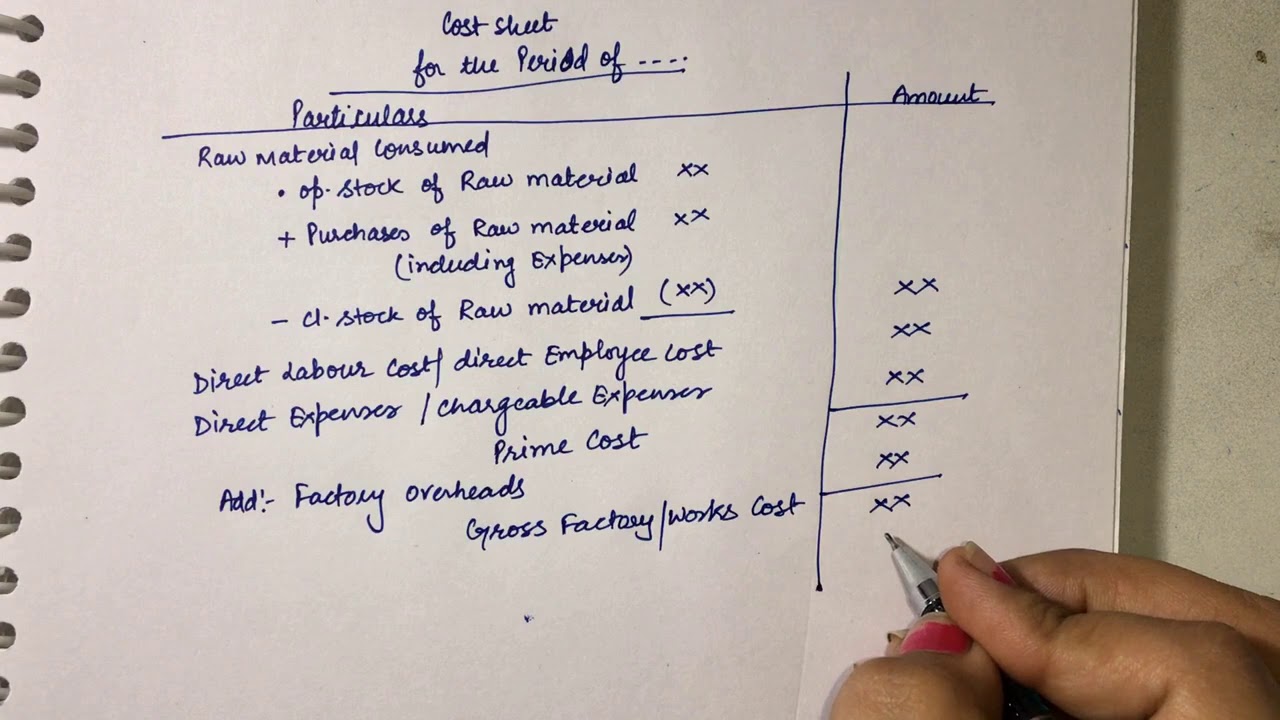 Cost sheet
for the Period of ----.
Particulars Amount
Raw material Consumed
• op. stock of Raw material xx
+ Purchases of Raw material xx
(including Expenses)
- cl. stock of Raw material (xx) xx
Direct Labour Cost/ direct Employee Cost xx
Direct Expenses / chargeable Expenses xx
Prime Cost xx
Add:- Factory overheads xx
Gross Factory/Works Cost xx